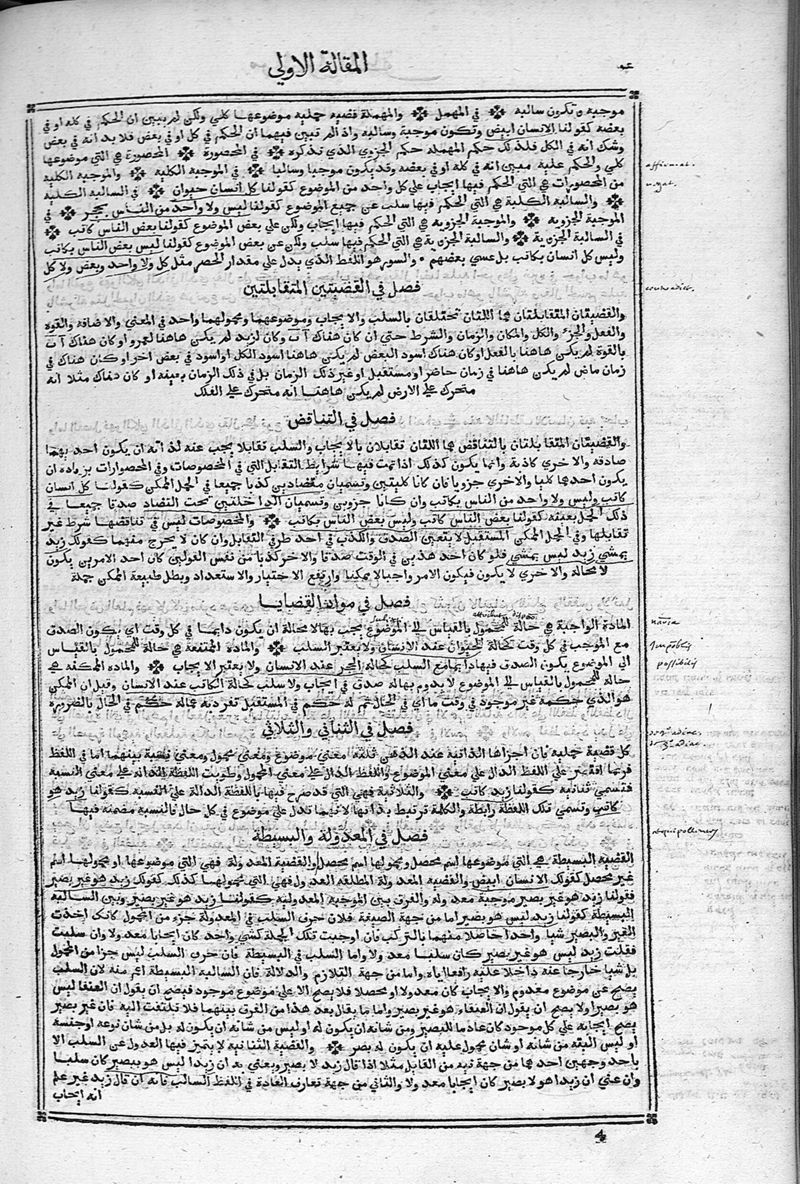 المقالة الاولي
موجبة وتكون سالبة في المهمل والمهملة قضية حملية موضوعها كلي ولكن لم يبين ان الحكم في كله او في
بعضه كقولنا الانسان ابيض وتكون موجبة وسالبة واذ الم تبين فيهما ان الحكم في كل او في بعض فلا بد انه في بعض
وشك انه في الكل فلذلك حكم المهملة حكم الجزوي الذي نذكره في المحصورة المحصورة هي التي موضوعها
كلي والحكم عليه مبين انه في كله او في بعضه وقد يكون موجبا وسالبا في الموجبة الكلية والموجبة الكلية
من المحصورات هي التي الحكم فيها ايجاب علي كل واحد من الموضوع كقولنا كل انسان حيوان في السالبة الكلية
والسالبة الكلية هي التي الحكم فيها سلب عن جميع الموضوع كقولنا ليس ولا واحد من الناس بحجر في
الموجبة الجزوية والموجبة الجزوية هي التي الحكم فيها ايجاب ولكن علي بعض الموضوع كقولنا بعض الناس كاتب
في السالبة الجزوية والسالبة الجزوية هي التي الحكم فيها سلب ولكن عن بعض الموضوع كقولنا ليس بعض الناس بكاتب
وليس كل انسان بكاتب بل عسي بعضهم والسور هو اللفظ الذي يدل علي مقدار الحصر مثل كل ولا واحد وبعض ولا كل
فصل في القضيتين المتقابلتين
والقضيتان المتقابلتان هما اللتان تختلفان بالسلب والايجاب وموضوعهما ومحمولهما واحد في المعني والاضافة والقوة
والفعل والجزء والكل والمكان والزمان والشرط حتي ان كان هناك اب وكان لزيد لم يكن هاهنا لعمرو او كان هناك اب
بالقوة لم يكن هاهنا بالفعل او كان هناك اسود البعض لم يكن هاهنا اسود الكل او اسود في بعض اخر او كان هناك في
زمان ماض لم يكن هاهنا في زمان حاضر او مستقبل او غير ذلك الزمان بل في ذلك الزمان بعينه او كان هناك مثلا انه
متحرك علي الارض لم يكن هاهنا انه متحرك علي الفلك
فصل في التناقض
والقضيتان المتقابلتان بالتناقض هما اللتان تقابلان بالايجاب والسلب تقابلا يجب عنه لذاته ان يكون احد بهما
صادقه والاخري كاذبة وانما يكون كذلك اذا تمت فيها شرايط التقابل التي في المخصوصات وفي المحصورات بزيادة ان
يكون احدهما كليا والاخري جزويا فان كانا كليتين وتسميان متضادين كذبا جميعا في الحمل الممكن كقولنا كل انسان
كاتب وليس ولا واحد من الناس بكاتب وان كانا جزويين وتسميان الداخلتين تحت التضاد صدقا جميعا في
ذلك الحمل بعينه كقولنا بعض الناس كاتب وليس بعض الناس بكاتب والمخصوصات ليس في تناقضها شرط غير
تقابلها وفي الحمل الممكن المستقبل لا يتعين الصدق والكذب في احد طرفي التقابل وان كان لا يخرج منهما كقولك زيد
يمشي زيد ليس يمشي فلو كان احد هذين في الوقت صدقا والاخر كذبا من نفس القولين كان احد الامرين يكون
لا محالة والاخري لا يكون فيكون الامر واجبا لا ممكنا وارتفع الاختيار والاستعداد وبطل طبيعة الممكن جملة
فصل في مواد القضايا
المادة الواجبة هي حالة للمحمول بالقياس الي الموضوع يجب بها لا محالة ان يكون دايما في كل وقت اي يكون الصدق
مع الموجب في كل وقت كحالة الحيوان عند الانسان ولا يعتبر السلب والمادة الممتنعة هي حالة للمحمول بالقياس
الي الموضوع يكون الصدق فيها دايما مع السلب كحالة الحجر عند الانسان ولا يعتبر الايجاب والمادة الممكنة هي
حالة للمحمول بالقياس الي الموضوع لا يدوم بها له صدق في ايجاب ولا سلب كحالة الكاتب عند الانسان وقيل ان الممكن
هو الذي حكمه غير موجود في وقت ما اي في الحال ثم له حكم في المستقبل
فصل في الثنائي والثلاثي
كل قضية حملية فان اجزاها الذاتية عند الذهن ثلثة معني موضوع ومعني محمول ومعني نسبة بينهما اما في اللفظ
فربما اقتصر علي اللفظ الدال علي معني الموضوع واللفظ الدال علي معني المحمول وطويت اللفظة الدالة علي معني النسبة
فتسمي ثنائية كقولنا زيد كاتب والثلاثية فهي التي قد صرح فيها باللفظة الدالة علي النسبة كقولنا زيد هو
كاتب وتسمي تلك اللفظة رابطة والكلمة ترتبط بذاتها لانها تدل علي موضوع في كل حال فالنسبة مضمنة فيها
فصل في المعدولة والبسيطة
القضية البسيطة هي التي موضوعها اسم محصل ومحمولها اسم محصل والقضية المعدولة فهي التي موضوعها او محمولها اسم
غير محصل كقولك الانسان ابيض والقضية المعدولة المطلقة العدول فهي التي محمولها كذلك كقولك زيد هو غير بصير
فقولنا زيد هو غير بصير موجبة معدولة والفرق بين الموجبة المعدولية كقولنا زيد هو غير بصير وبين السالبة
البسيطة كقولنا زيد ليس هو بصير اما من جهة الصيغة فلان حرف السلب في المعدولة جزء من المحمول كانك اخذت
الغير والبصير شيا واحدا حاصلا منهما بالتركب فان اوجبت تلك الجملة كشي واحد كان ايجابا معدولا وان سلبت
فقلت زيد ليس هو غير بصير كان سلبا معدولا واما السلب في البسيطة فان حرف السلب ليس جزا من المحمول
بل شيا خارجا عنه داخلا عليه رافعا اياه واما من جهة التلازم والدلالة فان السالبة البسيطة اعم منه لان السلب
يصح عن موضوع معدوم والايجاب كان معدولا او محصلا فلا يصح الا علي موضوع موجود فيصح ان يقول ان العنقا ليس
هو بصيرا ولا يصح ان يقول ان العنقاء هو غير بصير واما ما يقال بعد هذا من الفرق بينهما فلا تلتفت اليه فان غير بصير
يصح ايجابه علي كل موجود كان عادما للبصير ومن شانه ان يكون له او ليس من شانه ان يكون له بل من شان نوعه او جنسه
او ليس البته من شانه او شان محمول عليه ان يكون له بصر والقضية الثنائية لا يتميز فيها العدول عن السلب الا
باحد وجهين احدهما من جهة نيه من القابل مثلا اذا قال زيد لا بصير ويعني به ان زيدا ليس هو ببصير كان سلبا
وان عني ان زيدا هو لا بصير كان ايجابا معدولا والثاني من جهة تعارف العادة في اللفظ السالب فانه ان قال زيد غير علم
انه ايجاب
4
affirmat.
negat.
possibilis